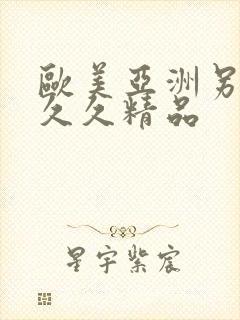 歐美亞洲另
久久精品
星宇紫宸